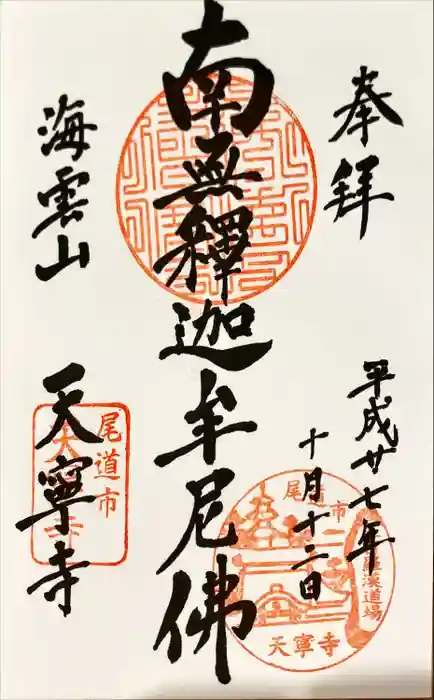 奉拝
平成廿七年
十月十二日
南無釋迦牟尼佛
海雲山
天寧寺
尾道市
尾道市
天寧寺